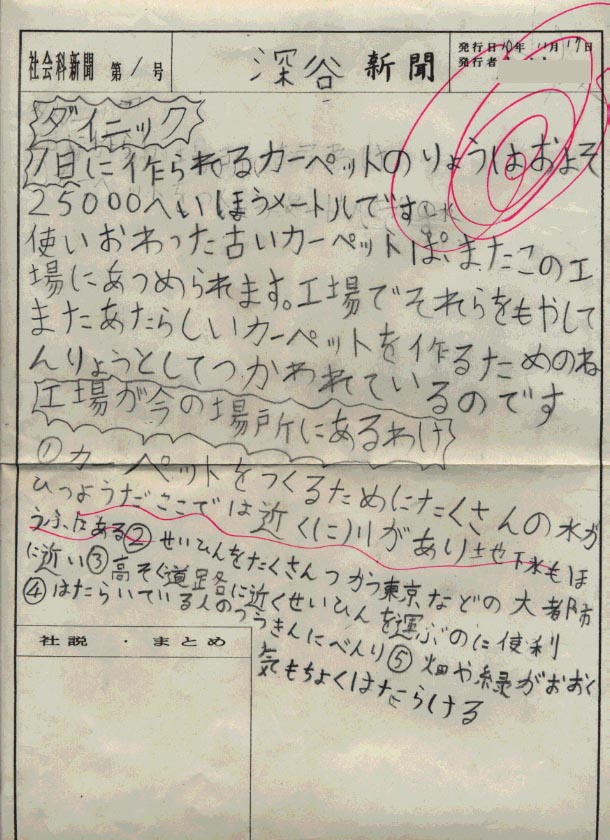 社会科新聞 第1号
深谷 新聞
発行日10年11月17日
発行者
ダイニック
1日に作られるカーペットのりょうはおよそ
25000へいほうメートルです
使いおわった古いカーペットは、またこの工
場にあつめられます。工場でそれらをもやして
またあたらしいカーペットを作るためのね
んりょうとしてつかわれているのです
工場が今の場所にあるわけ
①カーペットをつくるためにたくさんの水が
ひつようだここでは近く(に)川があり地下水もほ
うふにある②せいひんをたくさんつかう東京などの大都市
に近い③高そく道路に近くせいひんを運ぶのに便利
④はたらいている人のつうきんにべんり⑤畑や緑がおおく
気もちよくはたらける
社説・まとめ